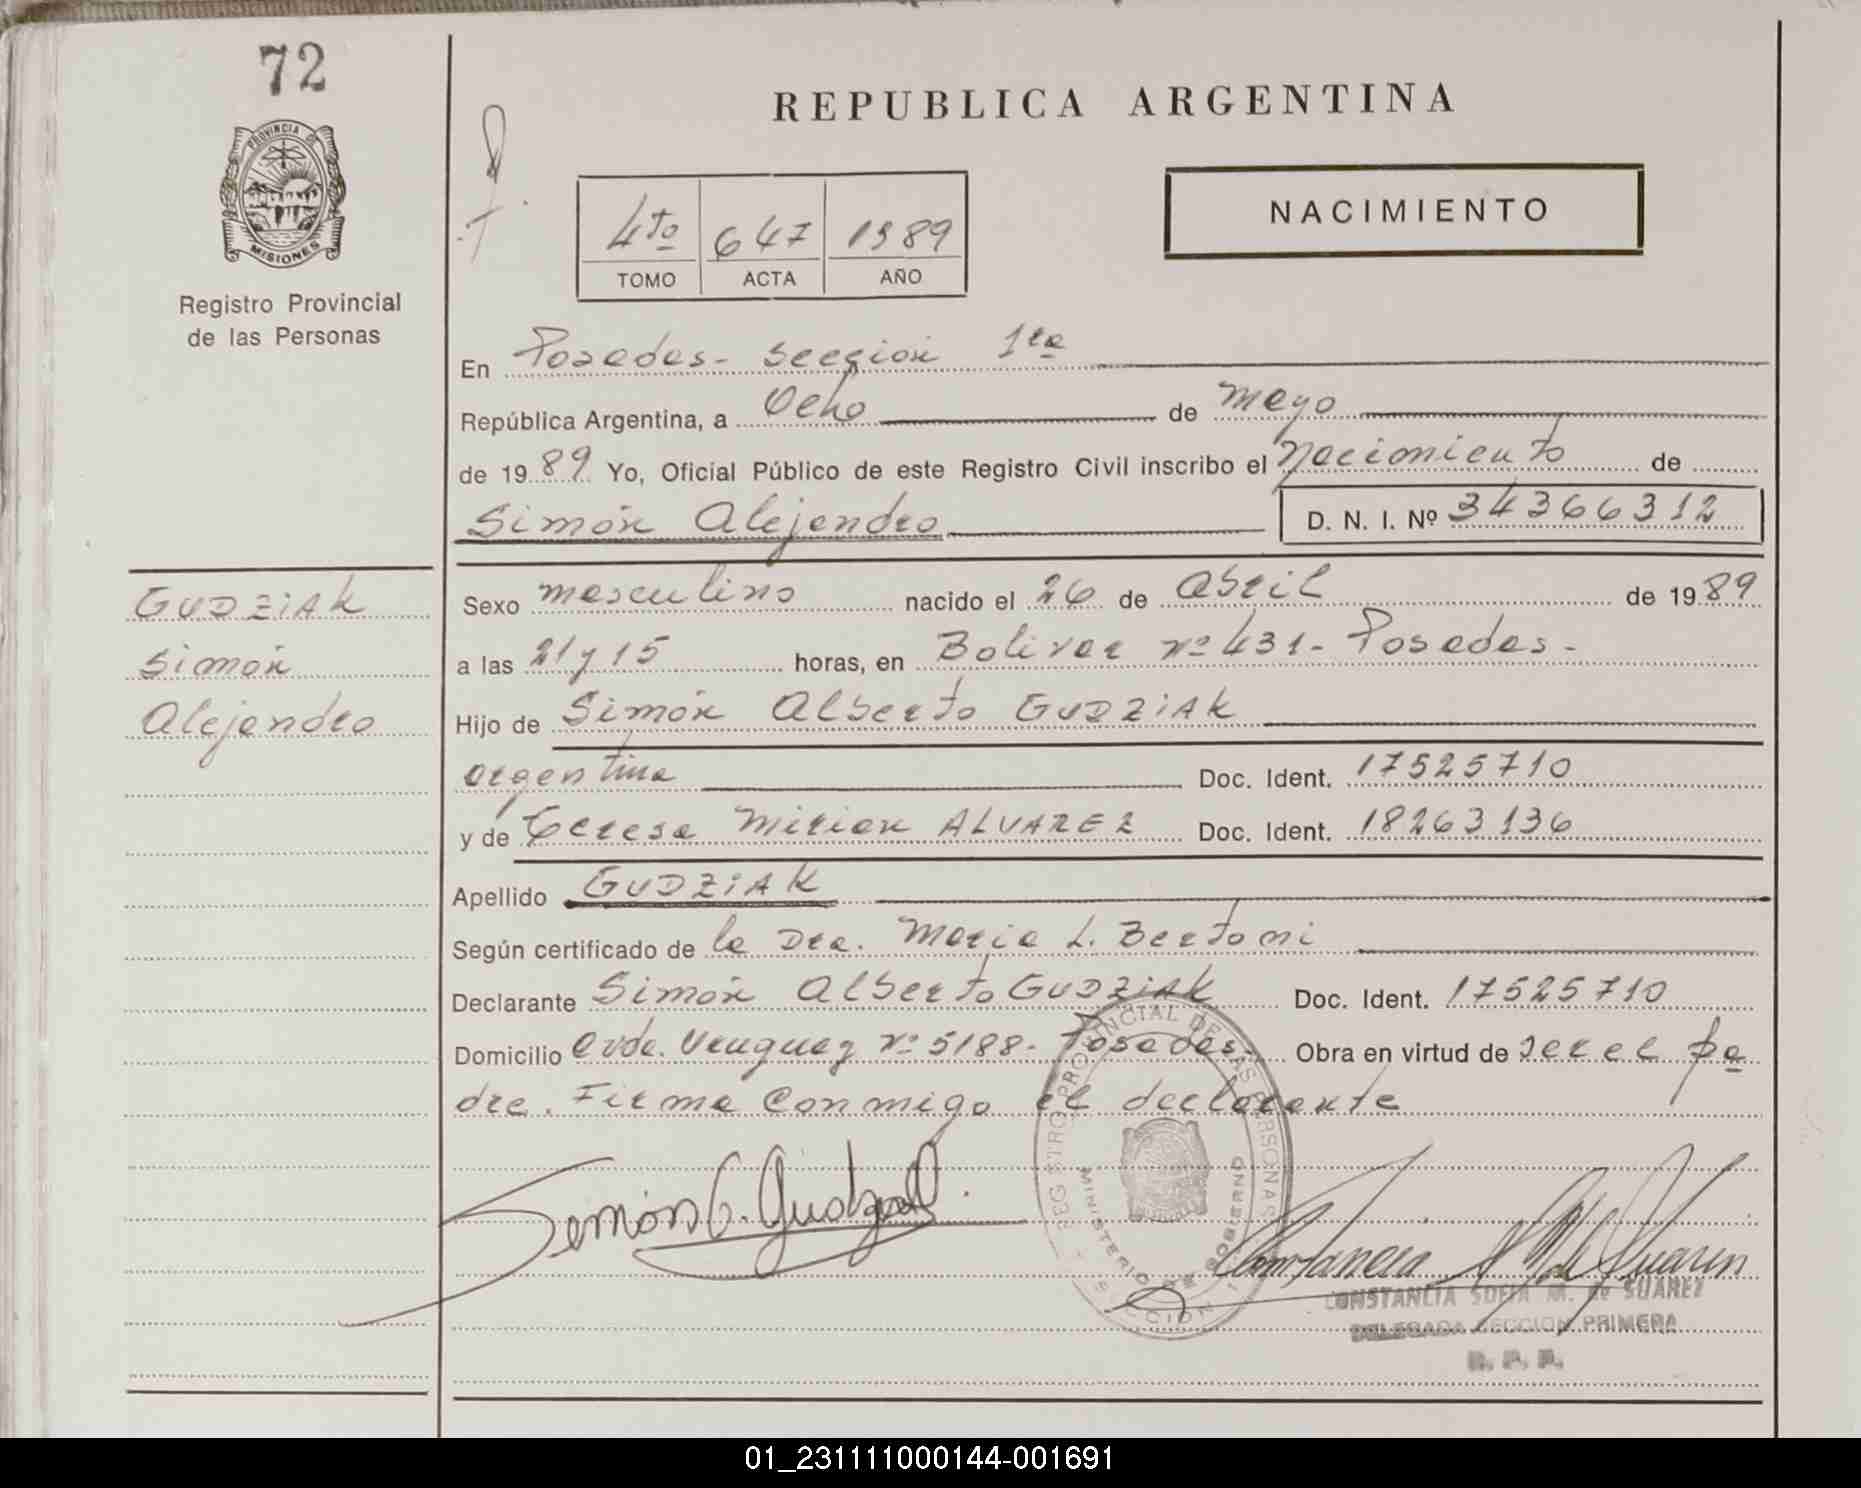 72
REPUBLICA ARGENTINA
PROVINCIA DE
MISIONES
Registro Provincial
de las Personas
4to 647 1989
TOMO ACTA AÑO
NACIMIENTO
En Posadas - Sección 1ra
República Argentina, a Ocho de mayo
de 1989 Yo, Oficial Público de este Registro Civil inscribo el Nacimiento de
Simón Alejandro D. N. I. Nº 34366312
GUDZIAK
Simón
Alejandro
Sexo masculino nacido el 26 de Abril de 1989
a las 21 y 15 horas, en Bolivar nº 431 - Posadas -
Hijo de Simón Alberto GUDZIAK
argentina Doc. Ident. 17525710
y de Teresa Mirian ALVAREZ Doc. Ident. 18263136
Apellido GUDZIAK
Según certificado de la Dra. Maria L. Bertoni
Declarante Simón Alberto GUDZIAK Doc. Ident. 17525710
Domicilio Avda. Uruguay nº 5188 - Posadas - Obra en virtud de ser el pa
dre. Firma conmigo el declarante
REGISTRO PROVINCIAL DE LAS PERSONAS
MINISTERIO DE GOBIERNO
CONSTANCIA SOFIA M. de SUAREZ
DELEGADA SECCION PRIMERA
R. P. P.
01_231111000144-001691